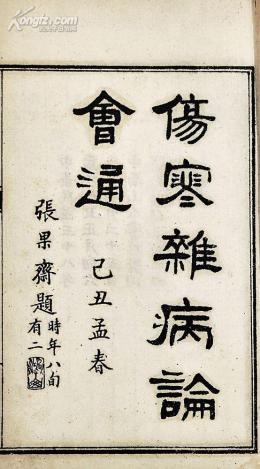 傷寒雜病論
會通
己丑孟春
張果齋題時年八旬
有二
Kongfz.com